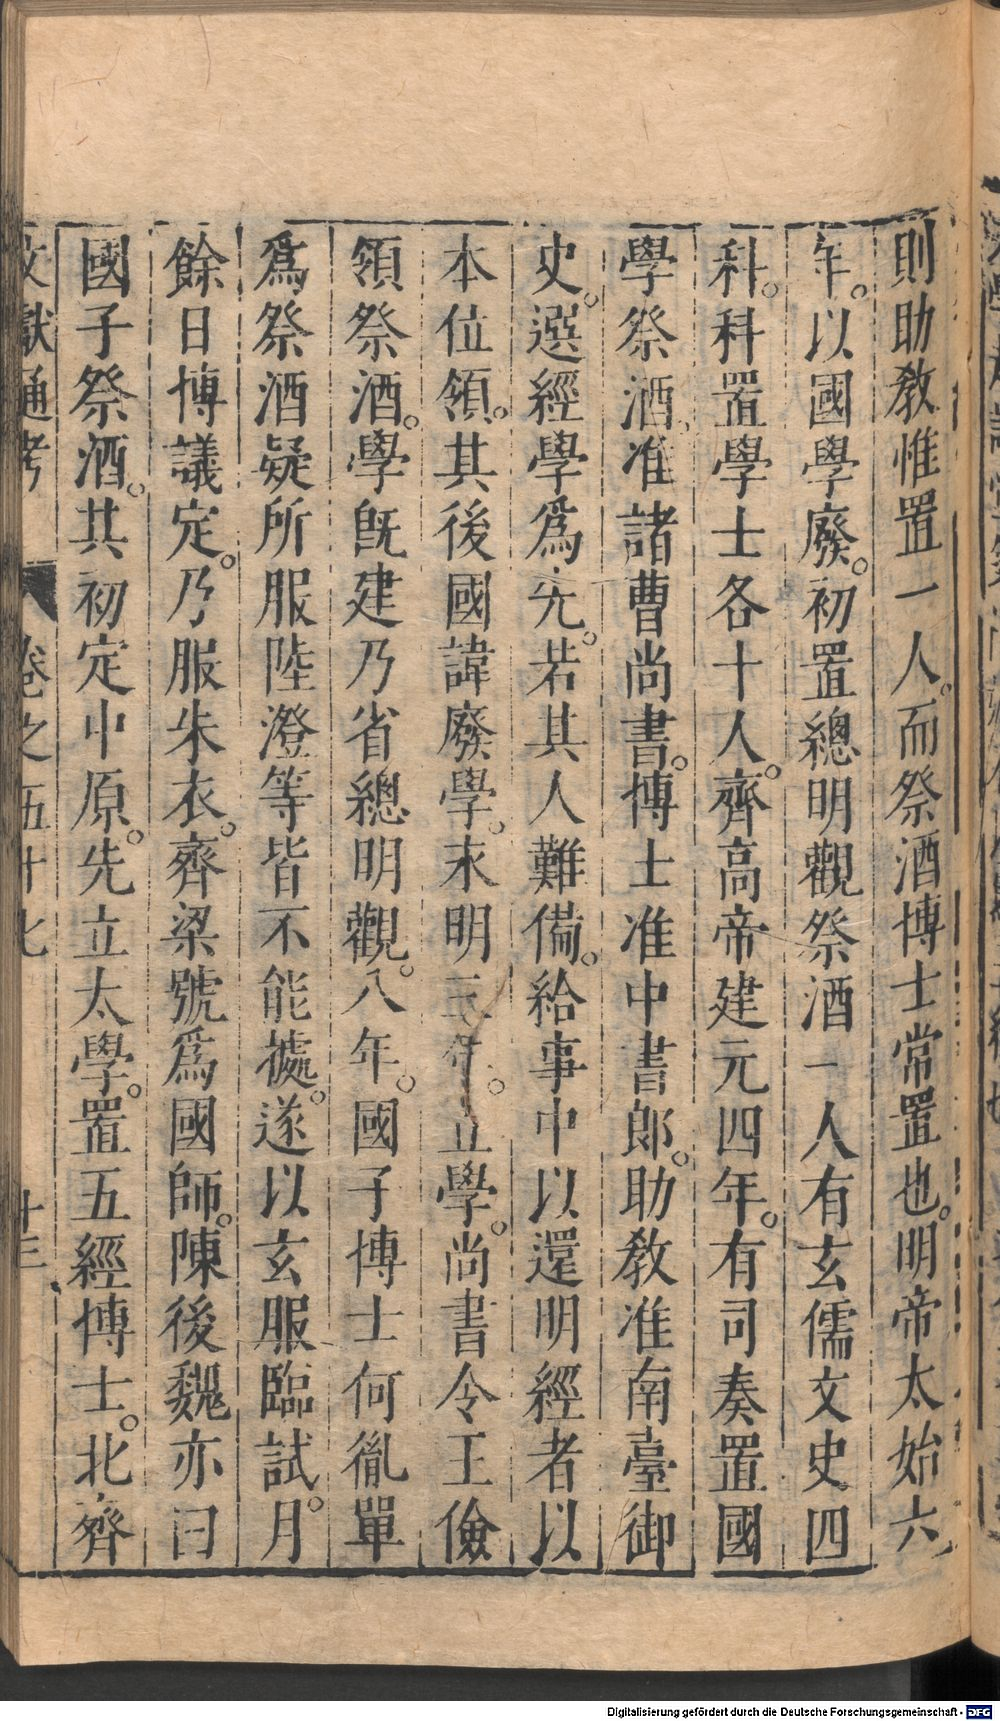 則助敎惟置一人。而祭酒博士常置也。明帝太始六
年。以國學廢。初置總明觀祭酒一人有玄儒文史四
科。科置學士各十人。齊高帝建元四年。有司奏置國
學祭酒准諸曹尚書。博士准中書郎。助敎准南臺御
史。選經學爲先。若其人難備。給事中以還明經者以
本位領。其後國諱廢學。永明三年。立學。尚書令王儉
領祭酒。學旣建乃省總明觀。八年。國子博士何胤單
爲祭酒疑所服陸澄等皆不能據。遂以玄服臨試。月
餘日博議定。乃服朱衣。齊梁號爲國師。陳後魏亦曰
國子祭酒。其初定中原。先立太學。置五經博士。北齊
文獻通考 卷之五十七 十三
Digitalisierung gefördert durch die Deutsche Forschungsgemeinschaft - DFG